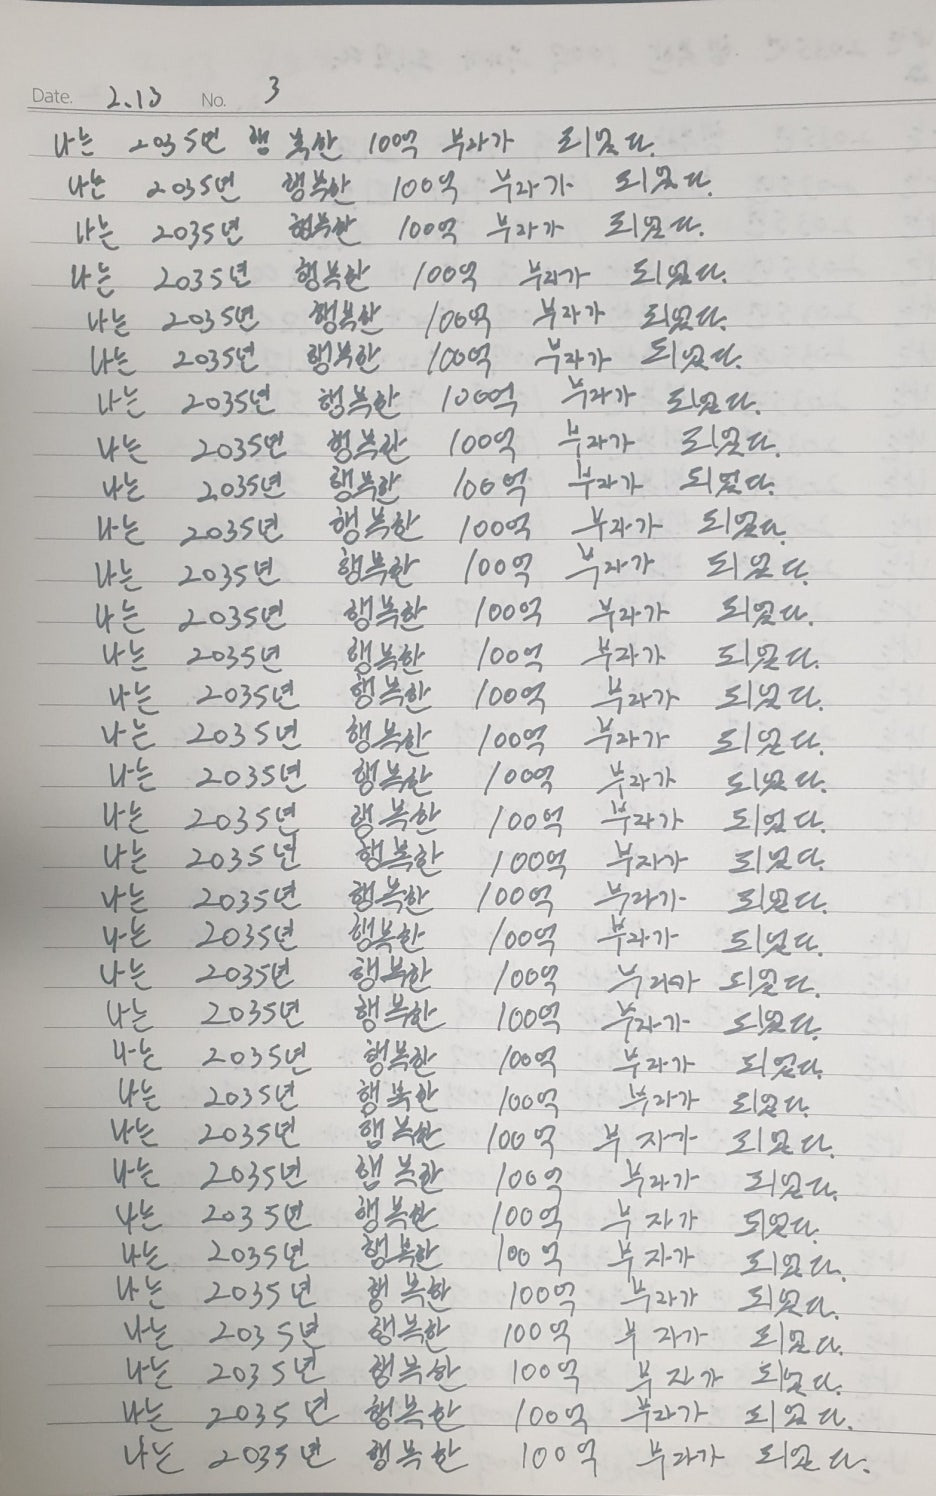 Date. 2.13 No. 3
나는 2035년 행복한 100억 부자가 되었다.
나는 2035년 행복한 100억 부자가 되었다.
나는 2035년 행복한 100억 부자가 되었다.
나는 2035년 행복한 100억 부자가 되었다.
나는 2035년 행복한 100억 부자가 되었다.
나는 2035년 행복한 100억 부자가 되었다.
나는 2035년 행복한 100억 부자가 되었다.
나는 2035년 행복한 100억 부자가 되었다.
나는 2035년 행복한 100억 부자가 되었다.
나는 2035년 행복한 100억 부자가 되었다.
나는 2035년 행복한 100억 부자가 되었다.
나는 2035년 행복한 100억 부자가 되었다.
나는 2035년 행복한 100억 부자가 되었다.
나는 2035년 행복한 100억 부자가 되었다.
나는 2035년 행복한 100억 부자가 되었다.
나는 2035년 행복한 100억 부자가 되었다.
나는 2035년 행복한 100억 부자가 되었다.
나는 2035년 행복한 100억 부자가 되었다.
나는 2035년 행복한 100억 부자가 되었다.
나는 2035년 행복한 100억 부자가 되었다.
나는 2035년 행복한 100억 부자가 되었다.
나는 2035년 행복한 100억 부자가 되었다.
나는 2035년 행복한 100억 부자가 되었다.
나는 2035년 행복한 100억 부자가 되었다.
나는 2035년 행복한 100억 부자가 되었다.
나는 2035년 행복한 100억 부자가 되었다.
나는 2035년 행복한 100억 부자가 되었다.
나는 2035년 행복한 100억 부자가 되었다.
나는 2035년 행복한 100억 부자가 되었다.
나는 2035년 행복한 100억 부자가 되었다.
나는 2035년 행복한 100억 부자가 되었다.
나는 2035년 행복한 100억 부자가 되었다.
나는 2035년 행복한 100억 부자가 되었다.